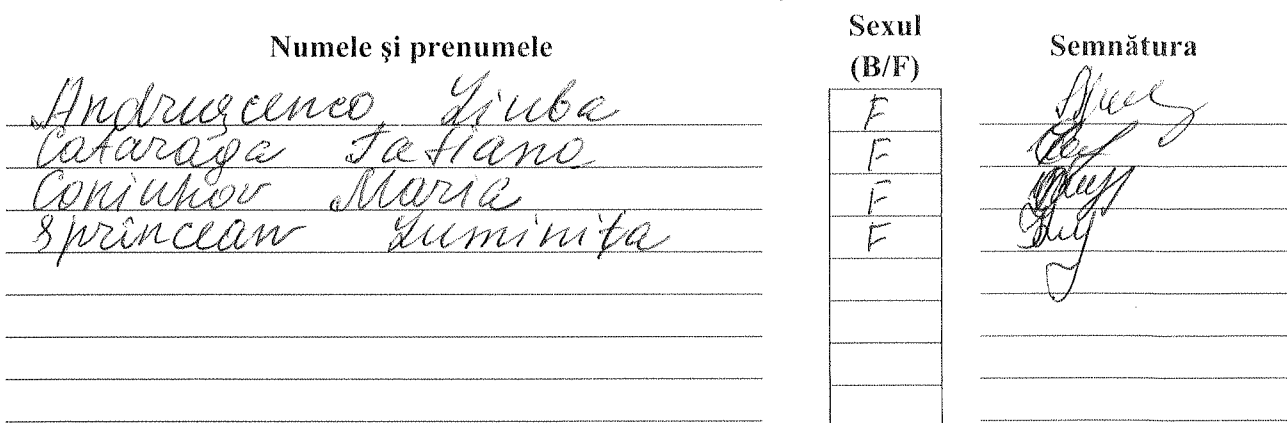 Numele și prenumele Sexul (B/F) Semnătura
Andrușcenco Liuba F
Cataraga Tatiana F
Coniuhov Maria F
Sprîncean Luminița F